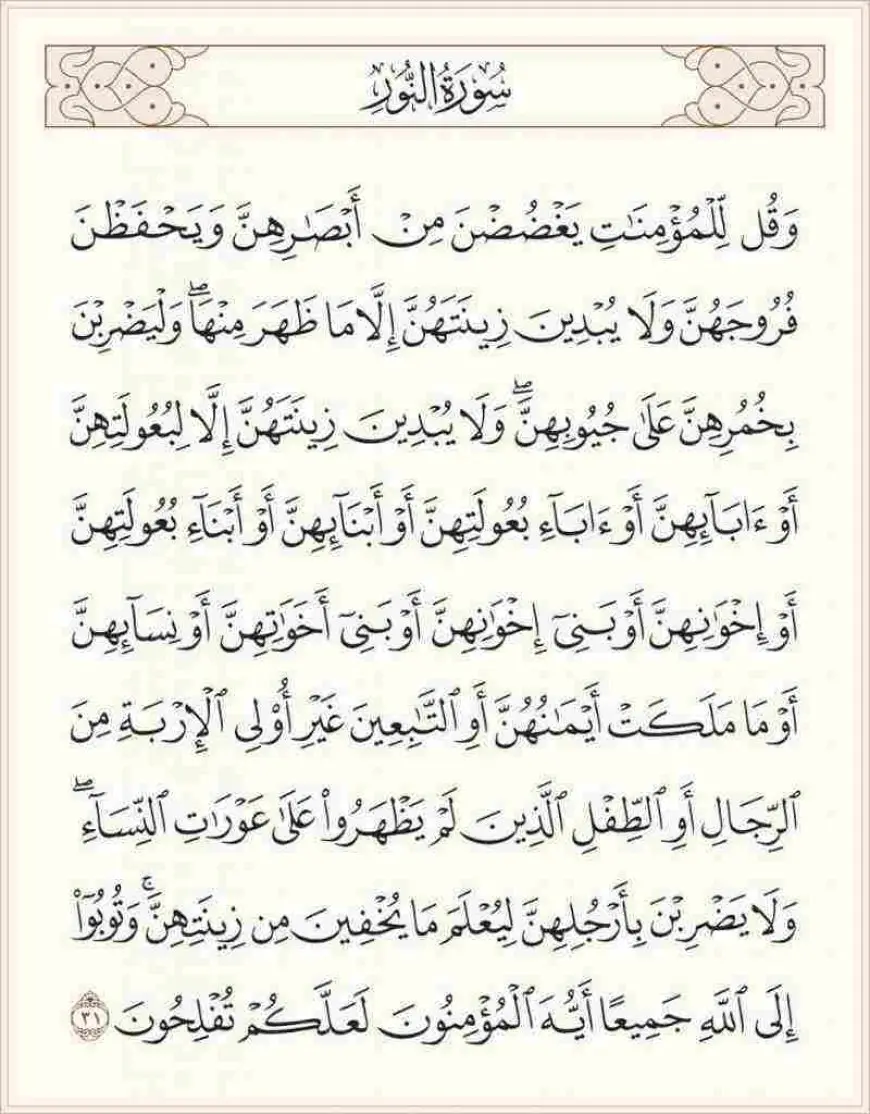 سُورَةُ النُّورِ
وَقُل لِّلْمُؤْمِنَٰتِ يَغْضُضْنَ مِنْ أَبْصَٰرِهِنَّ وَيَحْفَظْنَ
فُرُوجَهُنَّ وَلَا يُبْدِينَ زِينَتَهُنَّ إِلَّا مَا ظَهَرَ مِنْهَاۖ وَلْيَضْرِبْنَ
بِخُمُرِهِنَّ عَلَىٰ جُيُوبِهِنَّۖ وَلَا يُبْدِينَ زِينَتَهُنَّ إِلَّا لِبُعُولَتِهِنَّ
أَوْ ءَابَآئِهِنَّ أَوْ ءَابَآءِ بُعُولَتِهِنَّ أَوْ أَبْنَآئِهِنَّ أَوْ أَبْنَآءِ بُعُولَتِهِنَّ
أَوْ إِخْوَٰنِهِنَّ أَوْ بَنِىٓ إِخْوَٰنِهِنَّ أَوْ بَنِىٓ أَخَوَٰتِهِنَّ أَوْ نِسَآئِهِنَّ
أَوْ مَا مَلَكَتْ أَيْمَٰنُهُنَّ أَوِ ٱلتَّٰبِعِينَ غَيْرِ أُو۟لِى ٱلْإِرْبَةِ مِنَ
ٱلرِّجَالِ أَوِ ٱلطِّفْلِ ٱلَّذِينَ لَمْ يَظْهَرُوا۟ عَلَىٰ عَوْرَٰتِ ٱلنِّسَآءِۖ
وَلَا يَضْرِبْنَ بِأَرْجُلِهِنَّ لِيُعْلَمَ مَا يُخْفِينَ مِن زِينَتِهِنَّۚ وَتُوبُوٓا۟
إِلَى ٱللَّهِ جَمِيعًا أَيُّهَ ٱلْمُؤْمِنُونَ لَعَلَّكُمْ تُفْلِحُونَ ٣١